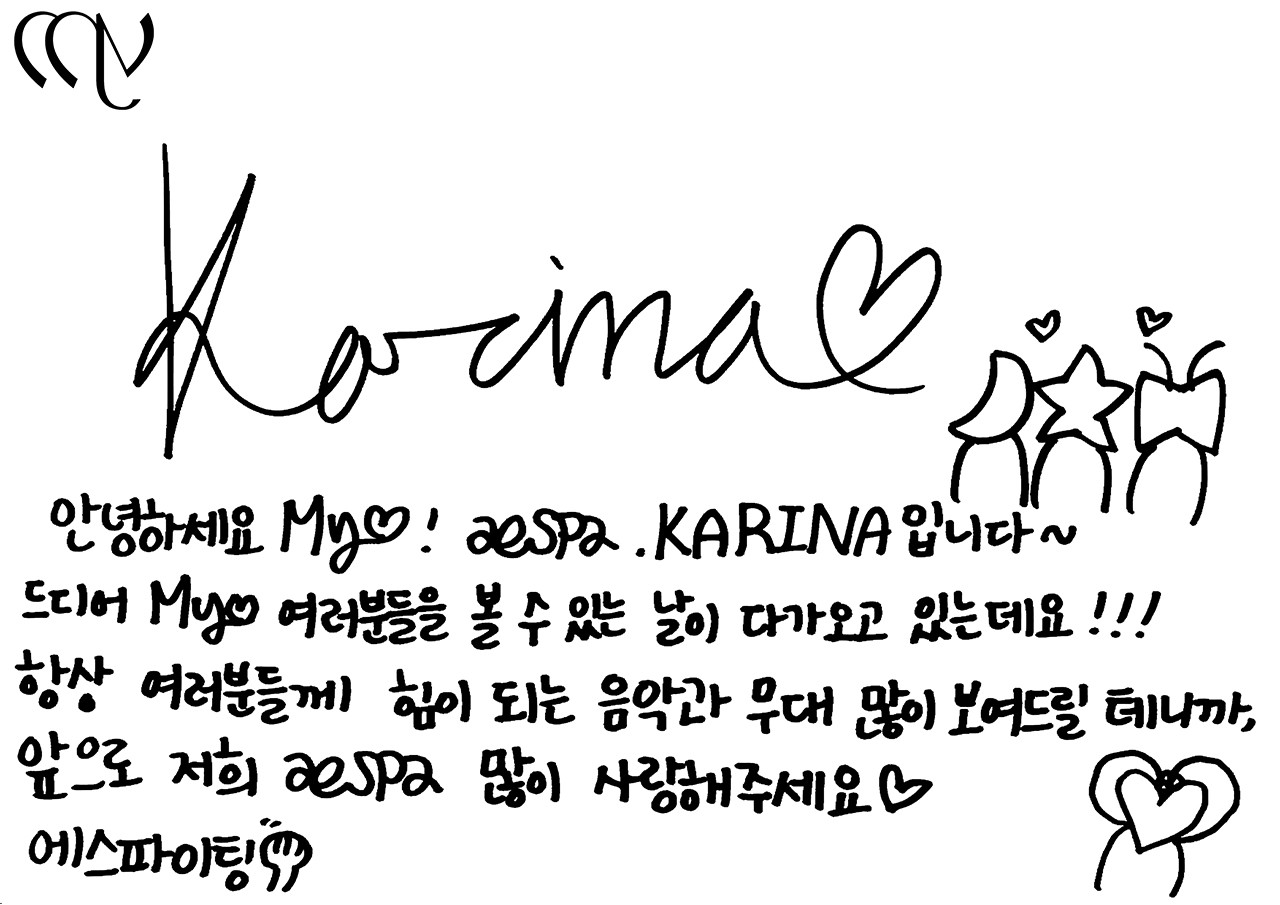 MY
Karina♡
안녕하세요 My♡! aespa. KARINA입니다~
드디어 My♡ 여러분들을 볼 수 있는 날이 다가오고 있는데요!!!
항상 여러분들께 힘이 되는 음악과 무대 많이 보여드릴 테니까,
앞으로 저희 aespa 많이 사랑해주세요♡
에스파이팅